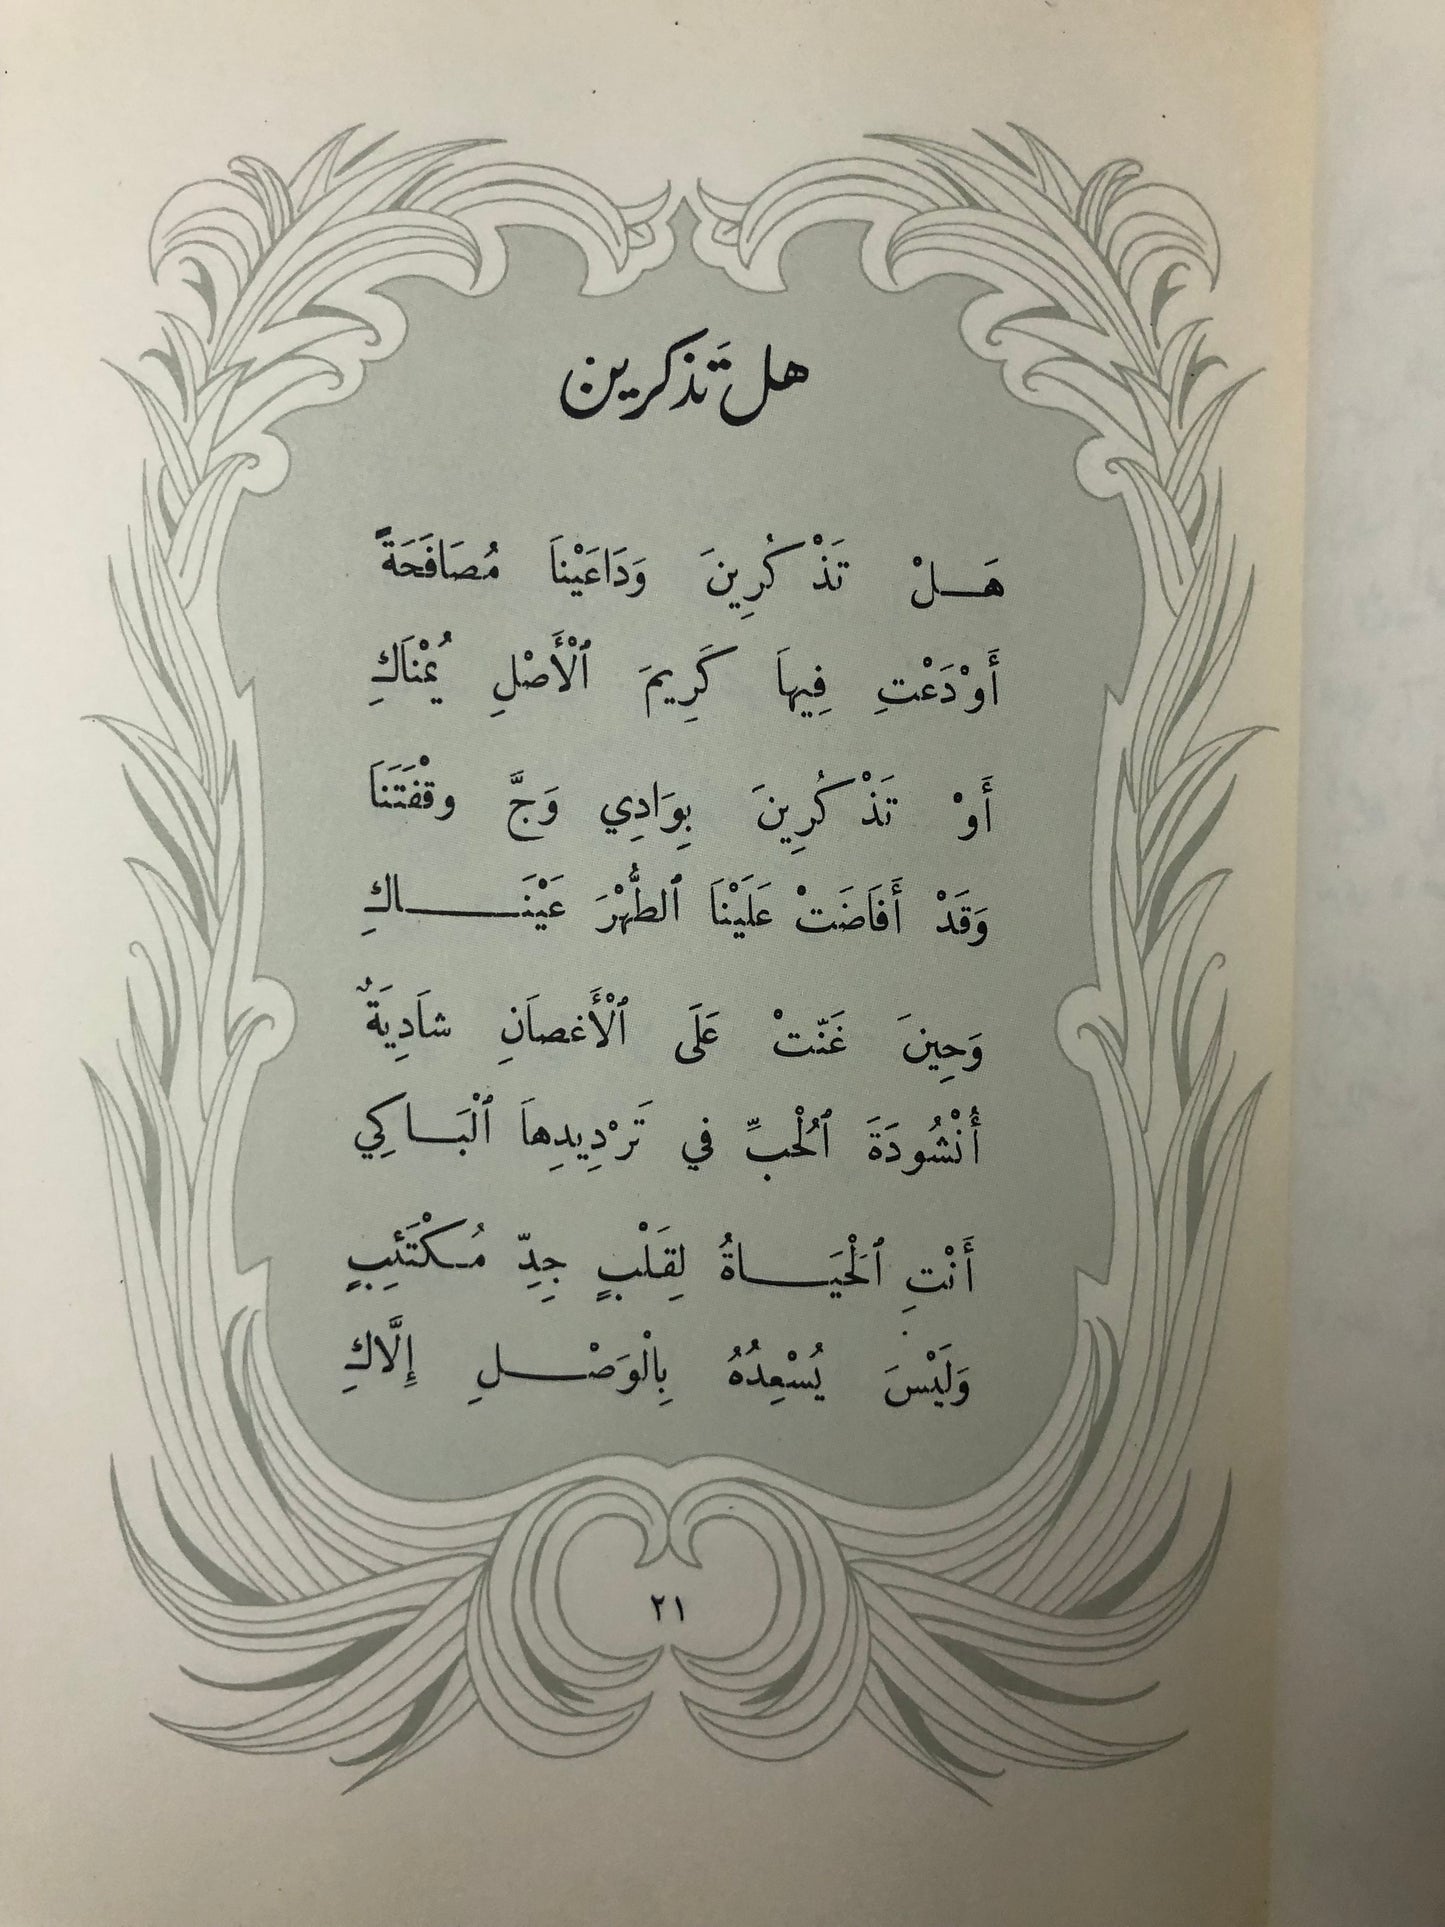 هل تذكرين
هَـلْ تَذْكُرِينَ وَدَاعَيْنَا مُصَافَحَةً
أَوْدَعْتِ فِيهَا كَرِيمَ ٱلْأَصْلِ يُمْنَاكِ
أَوْ تَذْكُرِينَ بِوَادِي وَجَّ وقْفَتَنَا
وَقَدْ أَفَاضَتْ عَلَيْنَا ٱلطُّهْرَ عَيْنَـــاكِ
وَحِينَ غَنَّتْ عَلَى ٱلْأَغصاَنِ شاَدِيَةٌ
أُنْشُودَةَ ٱلْحُبِّ في تَرْدِيدِهاَ ٱلْبَـاكِي
أَنْتِ ٱلْحَيَـــاةُ لِقَلْبٍ جِدِّ مُـكْتَئِبٍ
وَلَيْسَ يُسْعِدُهُ بِالْوَصْــلِ إِلَّاكِ
٢١